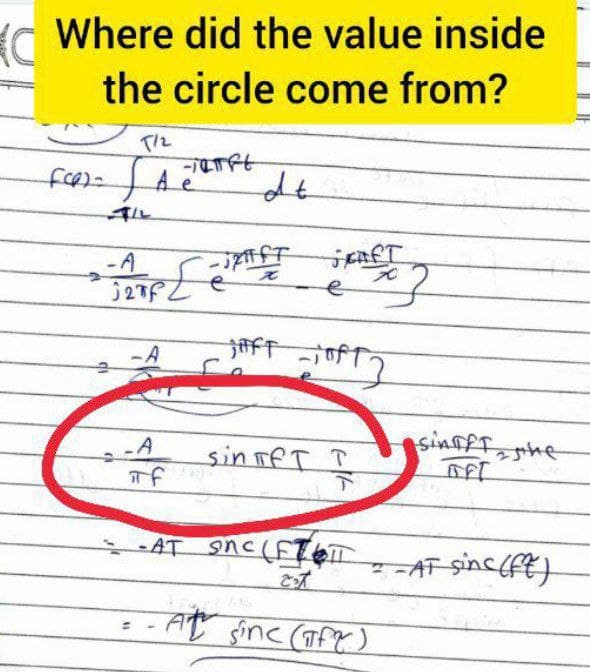 Where did the value inside
the circle come from?
T/2
F(f) = ∫ A e^-j2πft dt
-T/2
= -A/j2πf [ e^-j2πfT/2 - e^j2πfT/2 ]
= -A [ e^jπfT - e^-jπfT ]
= -A/πf sin πfT T/T
sinπfT/πfT = sinc
= -AT sinc(f
= -AT sinc(fτ)
= - Aτ sinc(πfτ)